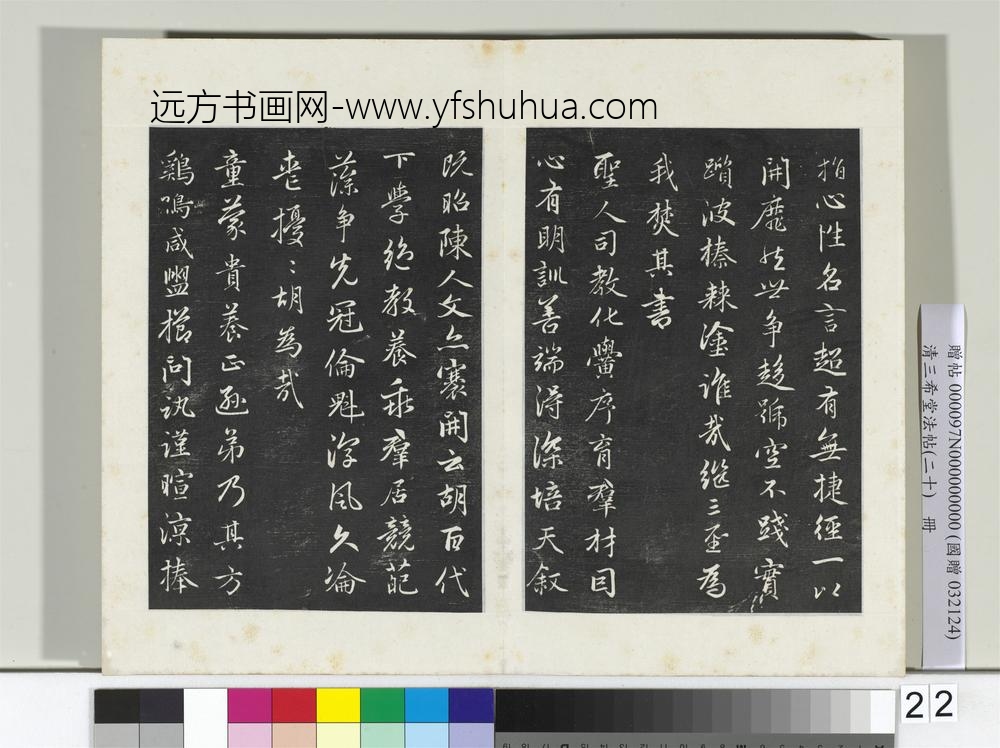 远方书画网-www.yfshuhua.com
指心性名言超有無捷徑一以
開靡然世争趍號空不踐實
躓彼榛棘塗誰哉繼三聖為
我焚其書
聖人司教化黌序育羣材因
心有明訓善端得深培天叙
既昭陳人文亦褰開云胡百代
下學絶教養乖羣居競葩
藻争先冠倫魁淳風久淪
喪擾〻胡為哉
童蒙貴養正遜弟乃其方
鷄鳴咸盥櫛問訊謹暄凉捧
贈帖 000097N000000000 (國贈 032124)
清三希堂法帖(二十) 冊
22